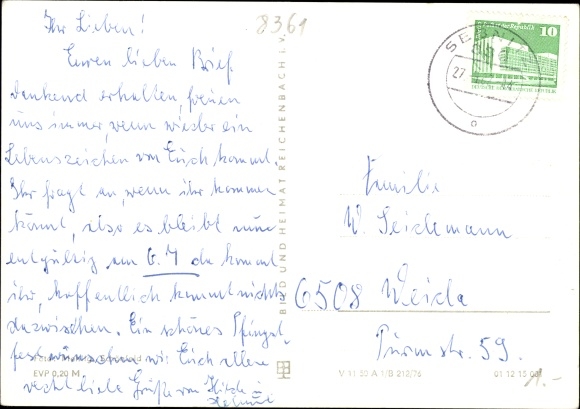 8361
Ihr Lieben!
Euren lieben Brief
dankend erhalten, freuen
uns immer, wenn wieder ein
Lebenszeichen von Euch kommt.
Ihr fragt an, wenn ihr kommen
könnt, also es bleibt nun
entgültig am 6. 7 da kommt
ihr, hoffentlich kommt nichts
dazwischen. Ein schönes Pfingst-
fest wünschen wir Euch allen
recht liebe Grüße von
Helmut
EVP 0,20 M
BILD UND HEIMAT REICHENBACH I. V.
V 11 50 A 1/B 212/76
01 12 15 06
der Republik
10
27
Familie
W. Seidemann
6508 Weida
Turmstr. 59.
1.-